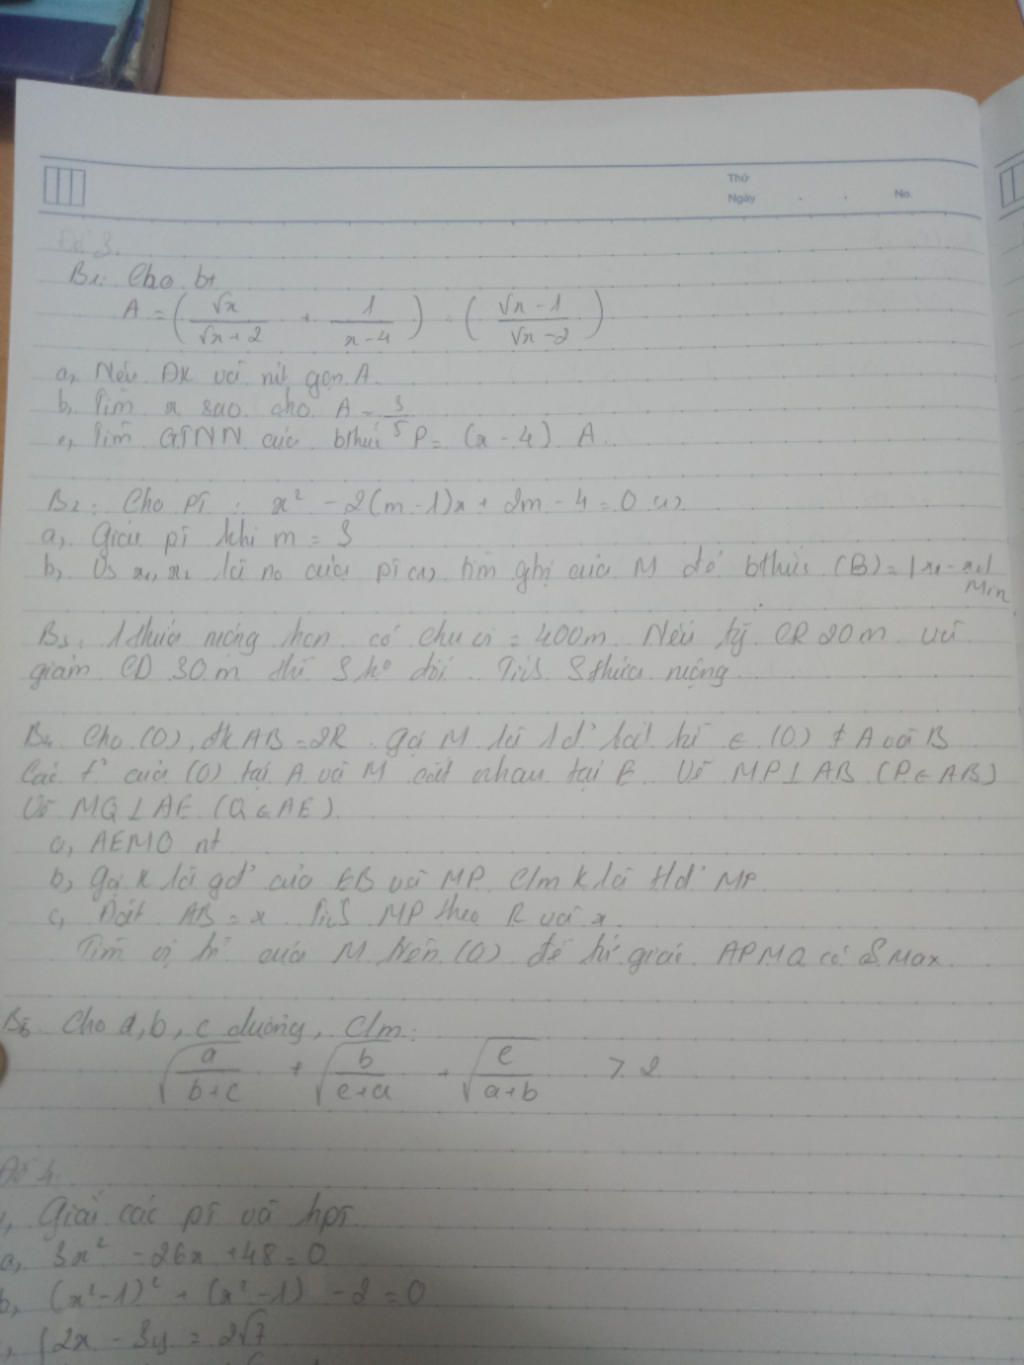 Thứ
Ngày . . No.
Đề 3.
B1: Cho bt
A = ( √x / (√x + 2) + 1 / (x - 4) ) . ( (√x - 1) / (√x - 2) )
a, Nêu ĐK và rút gọn A.
b, Tìm x sao cho A = 3/5
c, Tìm GTNN của bthức P = (x - 4) A
B2: Cho pt : x² - 2(m - 1)x + 2m - 4 = 0 (1)
a, Giải pt khi m = 3
b, x1, x2 là no của pt (1) tìm gtrị của M để bthức (B) = |x1 - x2| Min
B3: 1 thửa ruộng hcn có chu vi = 400m. Nếu tg CR 20m và
giảm CD 30m thì S ko đổi. Tính S thửa ruộng
B4 Cho (O), đk AB = 2R. Gọi M là 1 đ' bất kì ∈ (O) ≠ A và B
Các t² của (O) tại A và M cắt nhau tại E. Vẽ MP ⊥ AB (P ∈ AB)
Vẽ MQ ⊥ AE (Q ∈ AE).
a, AEMO nt
b, Gọi K là gđ' của EB và MP. C/m K là tđ' MP
c, Đặt AB = x. Tính MP theo R và x.
Tìm vị trí của M trên (O) để tứ giác APMQ có S Max.
B5 Cho a, b, c dương, C/m:
√(a / (b+c)) + √(b / (c+a)) + √(c / (a+b)) > 2
Đề 4.
1, Giải các pt và hpt
a, 3x² - 26x + 48 = 0
b, (x² - 1)² + (x² - 1) - 2 = 0
{ 2x - 3y = 2√7